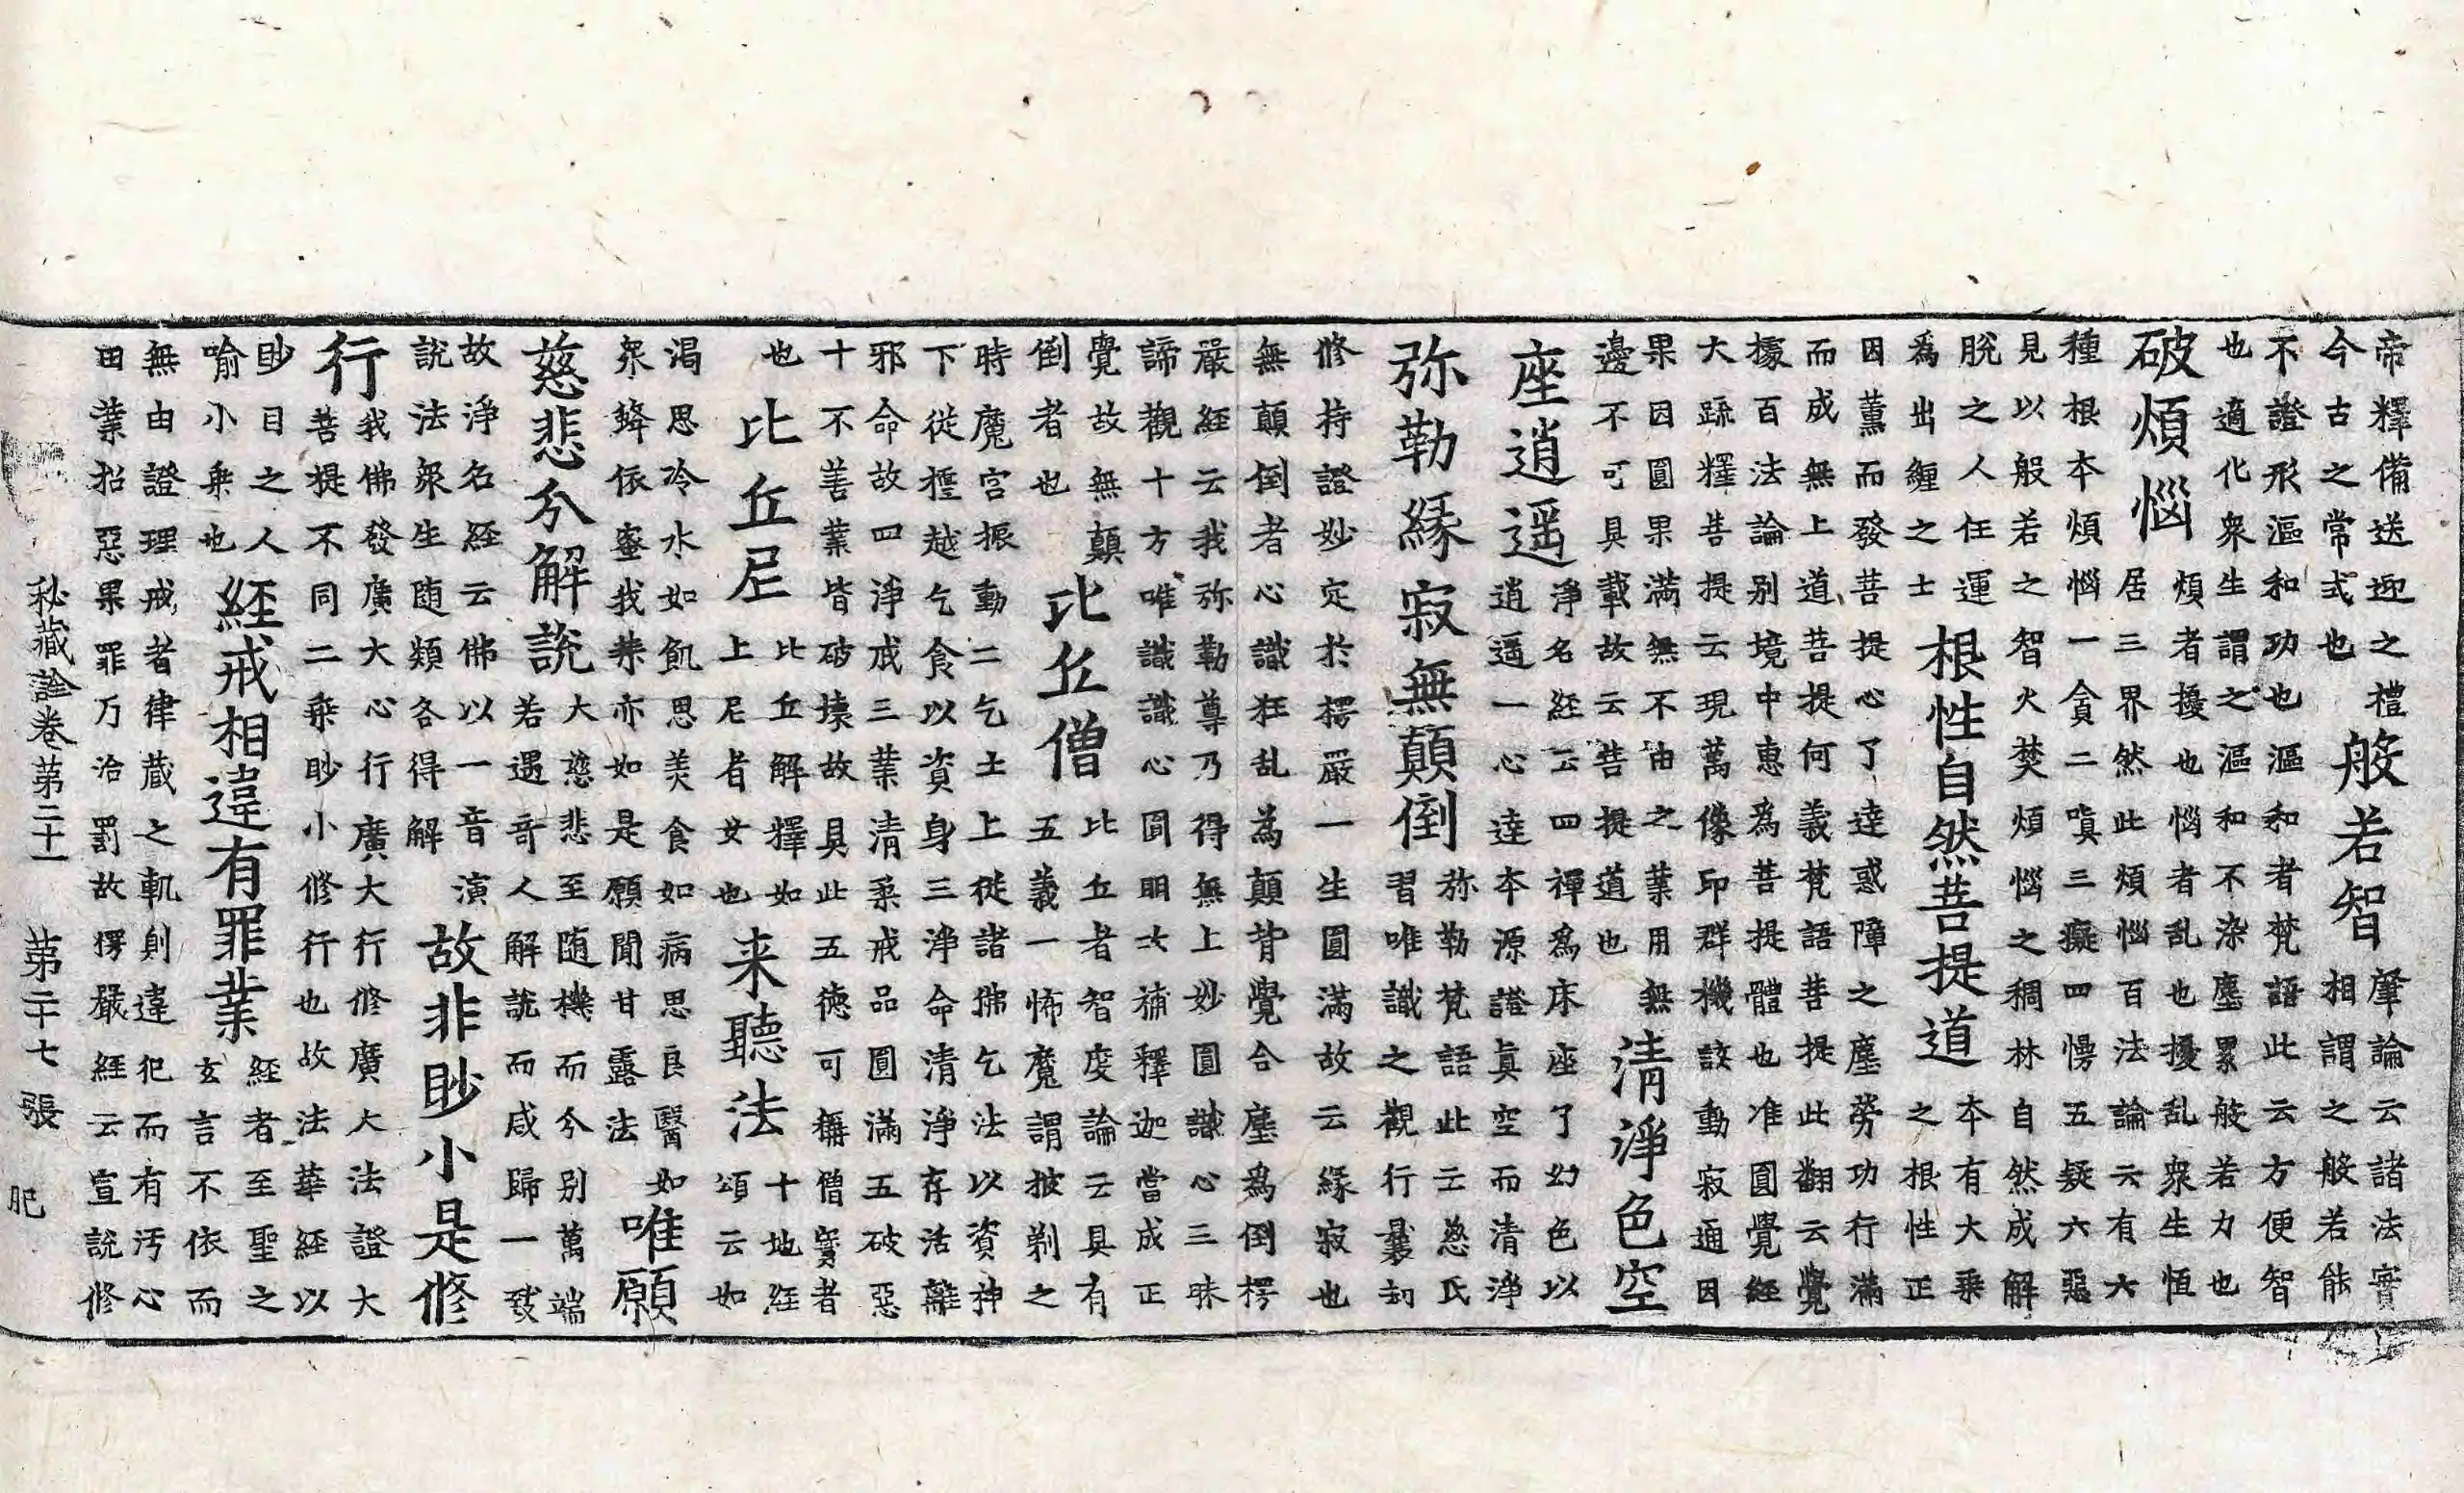 帝釋備送迎之禮
今古之常式也
般若智
肇論云諸法實
相謂之般若能
不證形漚和功也漚和者梵語此云方便智
也適化衆生謂之漚和不染塵累般若力也
破煩惱
煩者擾也惱者乱也擾乱衆生恒
居三界然此煩惱百法論云有六
種根本煩惱一貪二嗔三癡四慢五疑六惡
見以般若之智火焚煩惱之稠林自然成解
脫之人任運
為出纏之士
根性自然菩提道
本有大乗
之根性正
因薰而發菩提心了達惑障之塵勞功行滿
而成無上道菩提何義梵語菩提此翻云覺
據百法論別境中惠為菩提體也准圓覺經
大踈釋菩提云現萬像印群機該動寂通因
果因圓果滿無不由之業用無
邊不可具載故云菩提道也
清淨色空
座逍遥
淨名經云四禪為床座了幻色以
逍遥一心達本源證真空而清淨
弥勒縁寂無顛倒
弥勒梵語此云慈氏
習唯識之觀行曩刧
修持證妙定於楞嚴一生圓滿故云縁寂也
無顛倒者心識狂乱為顛背覺合塵為倒楞
嚴經云我弥勒尊乃得無上妙圓識心三昧
諦觀十方唯識識心圓明次補釋迦當成正
覺故無顛
倒者也
比丘僧
比丘者智度論云具有
五義一怖魔謂披剃之
時魔宮振動二乞士上從諸佛乞法以資神
下從檀越乞食以資身三淨命清淨存活離
邪命故四淨戒三業清柔戒品圓滿五破惡
十不善業皆破壊故具此五徳可稱僧寳者
也
比丘尼
比丘解釋如
上尼者女也
来聽法
十地經
頌云如
渴思冷水如飢思羙食如病思良醫如
衆蜂依蜜我䓁亦如是願聞甘露法
唯願
慈悲分解說
大慈悲至随機而今別萬端
若遇奇人解說而咸歸一致
故淨名經云佛以一音演
說法衆生随類各得解
故非眇小是修
行
我佛發廣大心行廣大行修廣大法證大
菩提不同二乗眇小修行也故法華經以
眇目之人
喻小乗也
經戒相違有罪業
經者至聖之
玄言不依而
無由證理戒者律蔵之軌則違犯而有汚心
田業招惡果罪乃治罰故楞嚴經云宣說修
秘藏詮卷第二十一 第二十七張 肥